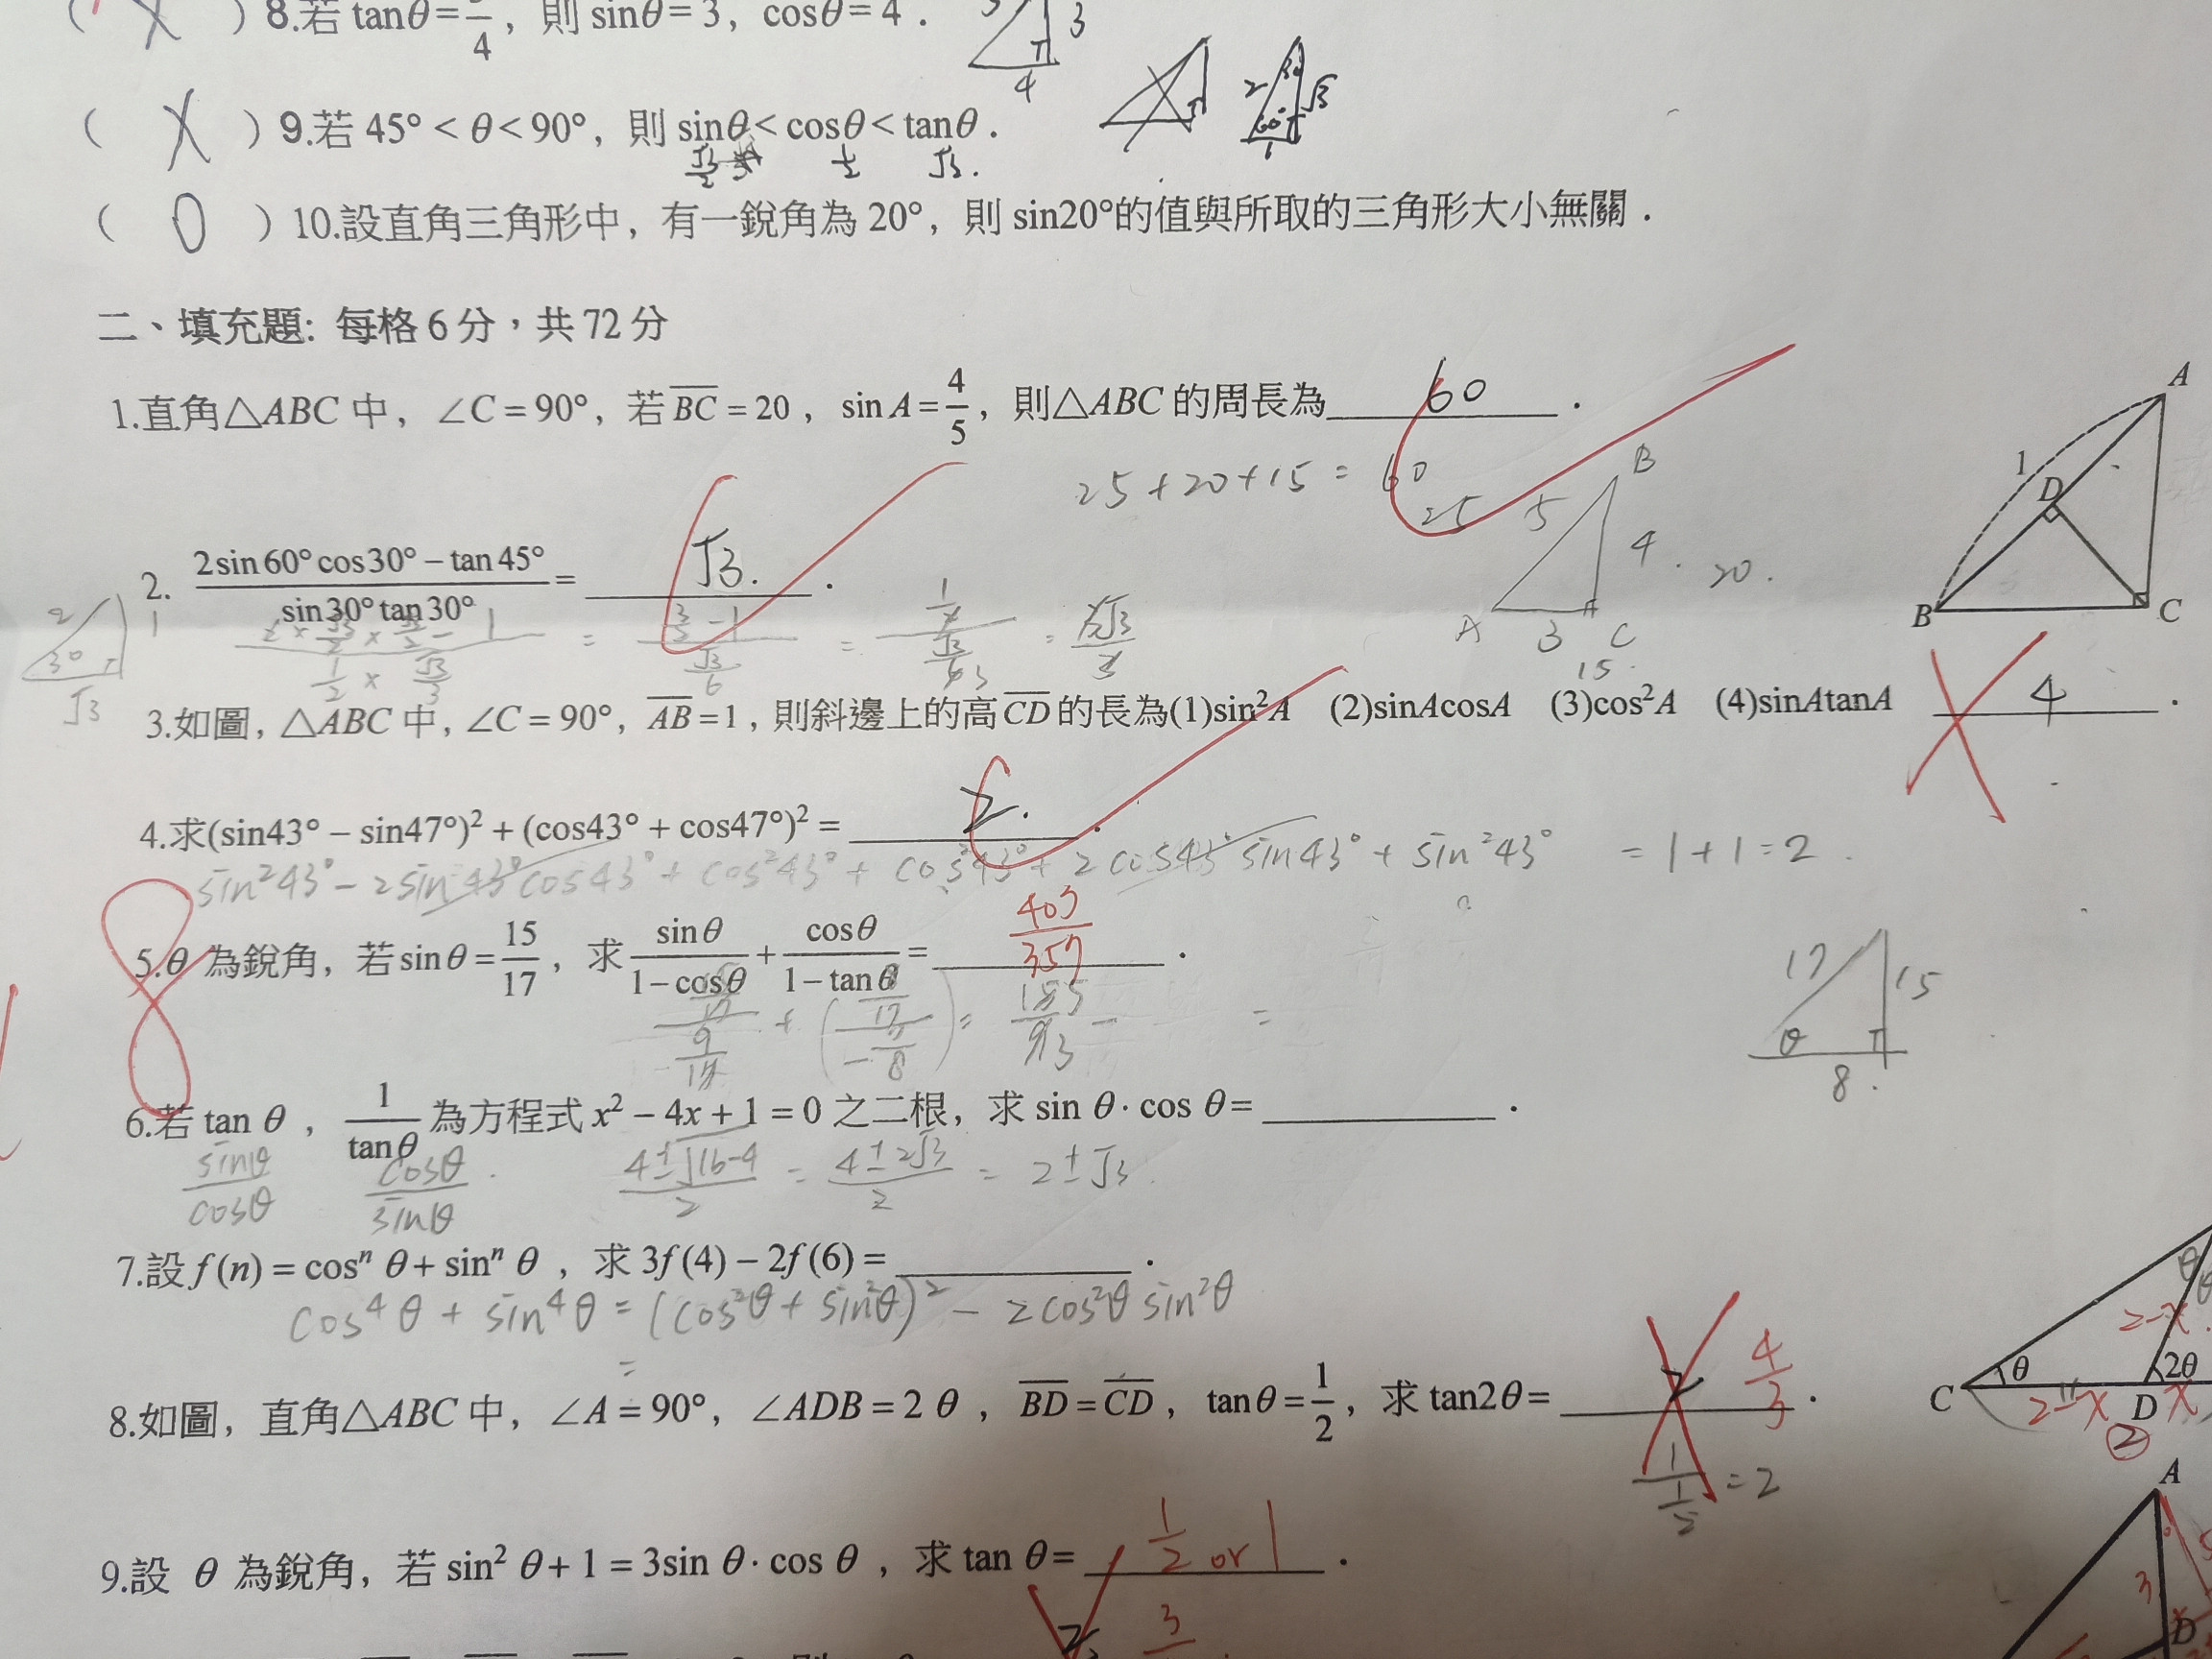 ( X ) 8.若 tanθ=/4, 則 sinθ=3, cosθ=4.
3
4
( X ) 9.若 45°<θ<90°, 則 sinθ<cosθ<tanθ.
√3/2 1/2 √3.
2 30 √3 60° 1
( O ) 10.設直角三角形中, 有一銳角為 20°, 則 sin20°的值與所取的三角形大小無關.
二、填充題: 每格 6 分, 共 72 分
1.直角△ABC 中, ∠C=90°, 若 BC=20, sin A=4/5, 則△ABC 的周長為 60 .
25+20+15=60
25 5 B 4. 20. A 3 C 15.
A 1 D B C
2. (2sin60°cos30°−tan45°)/(sin30°tan30°)= √3. .
2 1 30 √3
(2×√3/2×√3/2−1)/(1/2×√3/3) = (3/2−1)/(√3/6) =
3.如圖, △ABC 中, ∠C=90°, AB=1, 則斜邊上的高 CD 的長為(1)sin²A (2)sinAcosA (3)cos²A (4)sinAtanA 4 .
4.求(sin43°−sin47°)²+(cos43°+cos47°)²= 2. .
sin²43°−2sin43°cos43°+cos²43°+cos²43°+2cos43°sin43°+sin²43° =1+1=2.
5.θ 為銳角, 若 sinθ=15/17, 求 sinθ/(1−cosθ)+cosθ/(1−tanθ)= 403/357 .
17 15 θ 8.
6.若 tan θ, 1/tanθ 為方程式 x²−4x+1=0 之二根, 求 sin θ·cos θ= .
sinθ/cosθ cosθ/sinθ. (4±√16-4)/2 = (4±2√3)/2 = 2±√3.
7.設 f(n)=cosⁿ θ+sinⁿ θ, 求 3f(4)−2f(6)= .
cos⁴θ+sin⁴θ=(cos²θ+sin²θ)²−2cos²θ sin²θ
=
8.如圖, 直角△ABC 中, ∠A=90°, ∠ADB=2θ, BD=CD, tanθ=1/2, 求 tan2θ= 2 4/3 .
1/(1/2) =2
θ θ 2-x C θ 2θ 2-x D x 2
9.設 θ 為銳角, 若 sin² θ+1=3sin θ·cos θ, 求 tan θ= 1/2 or 1 .
A 3 D